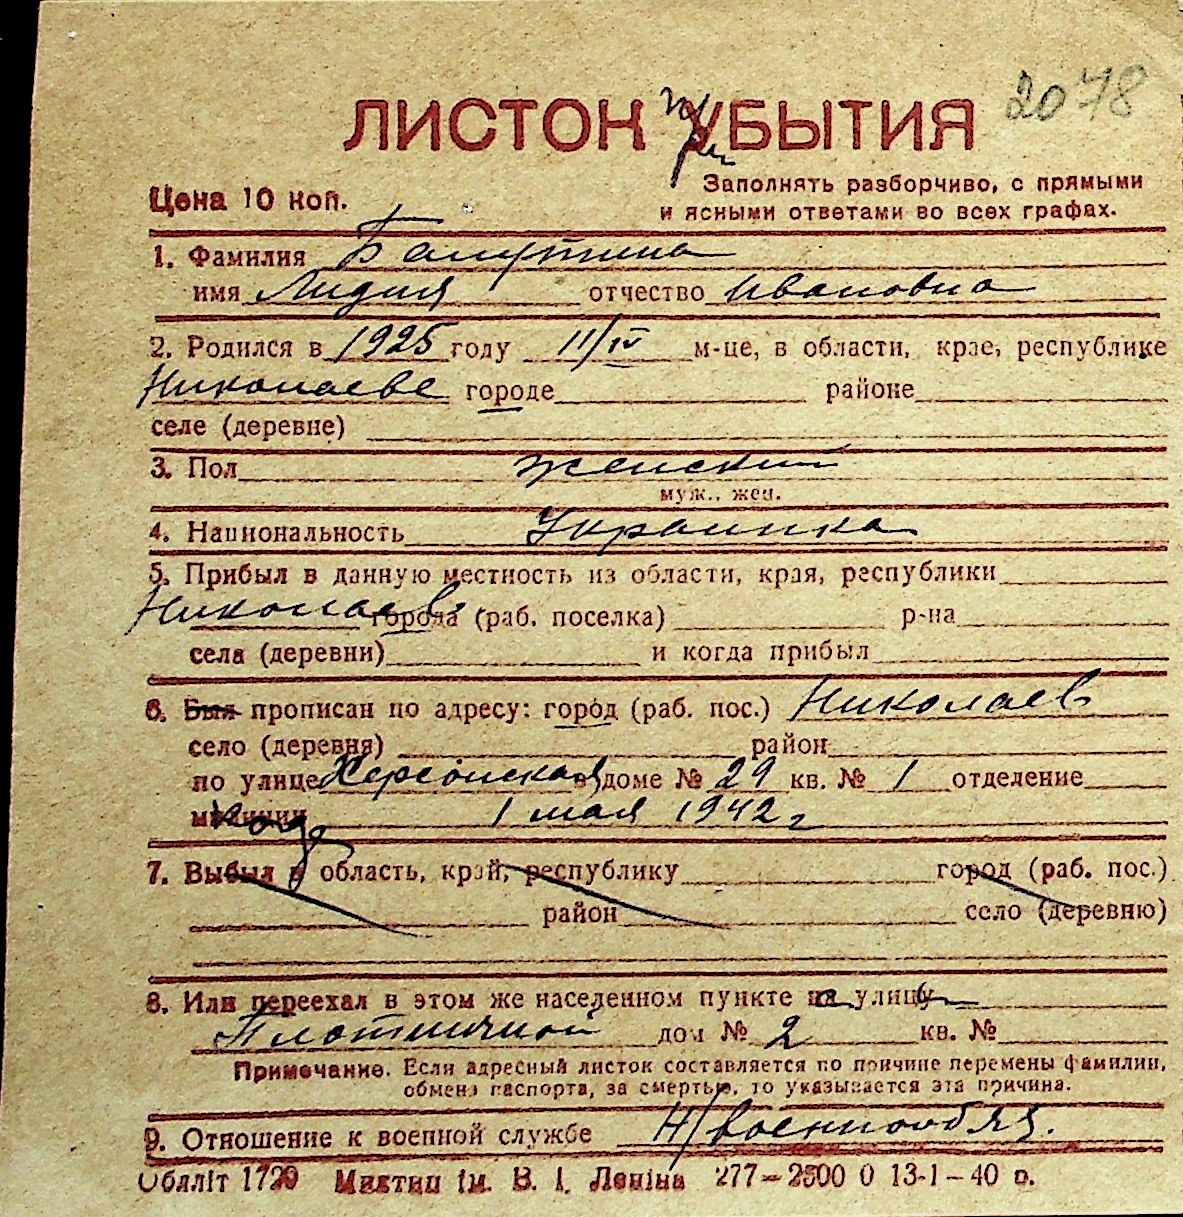 2078
ЛИСТОК при УБЫТИЯ
Цена 10 коп.
Заполнять разборчиво, с прямыми
и ясными ответами во всех графах.
1. Фамилия
имя Лидия отчество Ивановна
2. Родился в 1925 году 11/IV м-це, в области, крае, республике
Николаеве городе районе
селе (деревне)
3. Пол женский
муж., жен.
4. Национальность Украинка
5. Прибыл в данную местность из области, края, республики
Николаев города (раб. поселка) р-на
села (деревни) и когда прибыл
6. Был прописан по адресу: город (раб. пос.) Николаев
село (деревня) район
по улице Херсонская в доме № 29 кв. № 1 отделение
милиции когда 1 мая 1942 г
7. Выбыл в область, край, республику город (раб. пос.)
район село (деревню)
8. Или переехал в этом же населенном пункте на улицу
Плотничной дом № 2 кв. №
Примечание. Если адресный листок составляется по причине перемены фамилии,
обмена паспорта, за смертью, то указывается эта причина.
9. Отношение к военной службе Н/военнообяз.
Обллiт 1720 Миктип iм. В. I. Ленiна 277—2500 0 13-1—40 р.